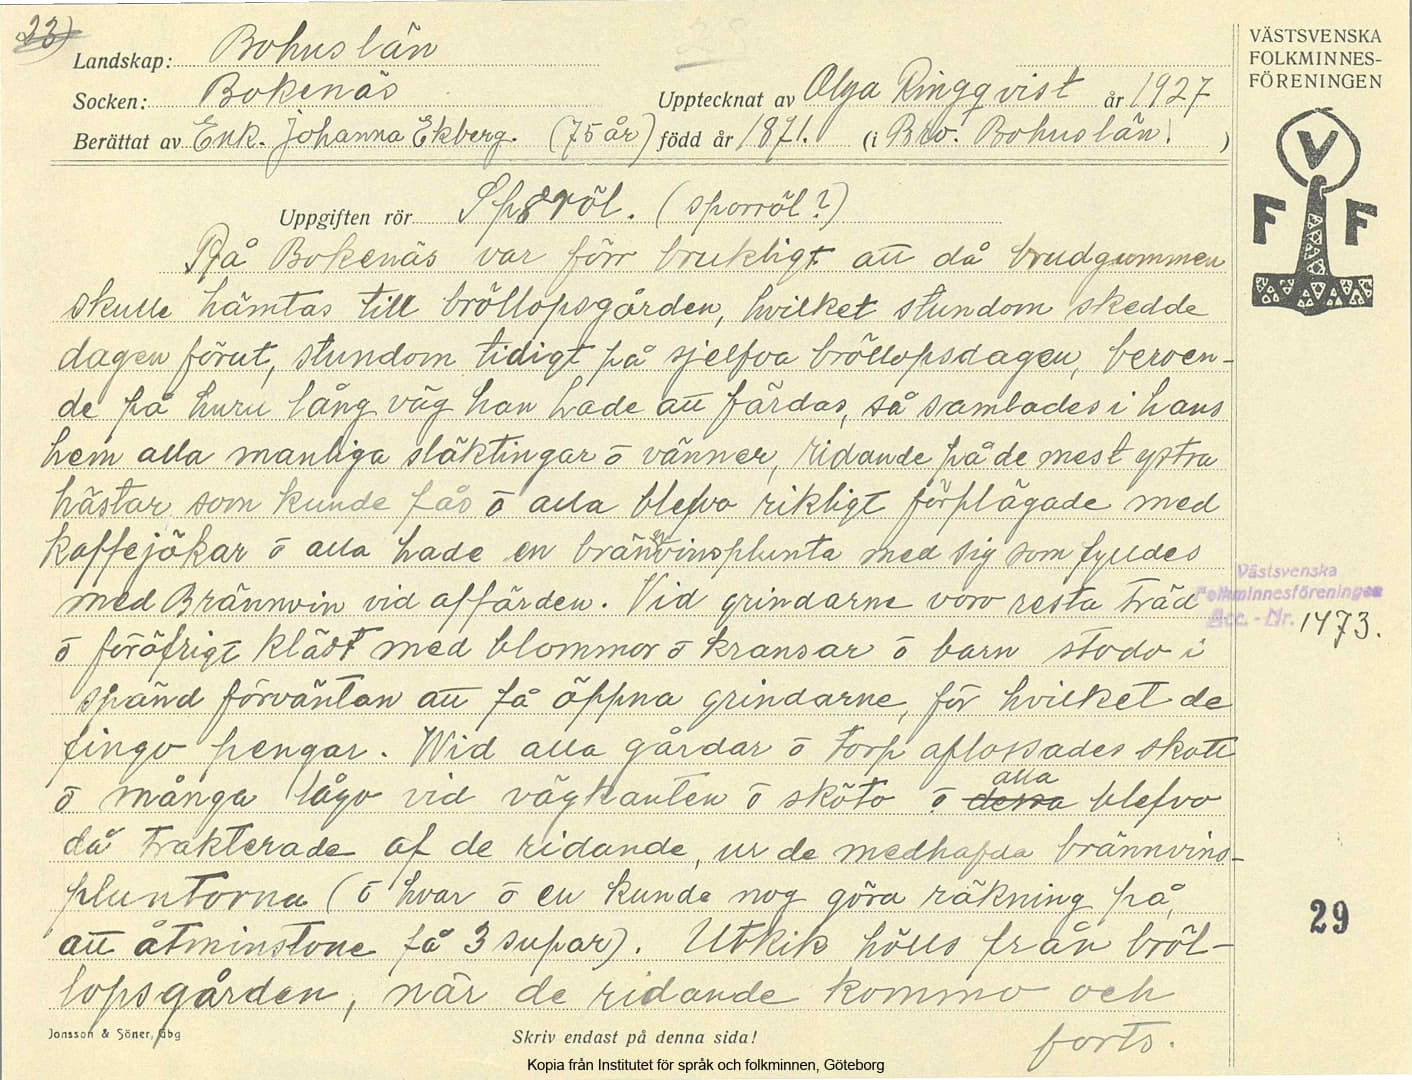 23)
Landskap: Bohuslän
Socken: Bokenäs
Upptecknat av Olga Ringqvist år 1927
Berättat av Enk. Johanna Ekberg. (75 år) född år 1871. (i Bro. Bohuslän. )
VÄSTSVENSKA
FOLKMINNES-
FÖRENINGEN
V
F F
Uppgiften rör Sporöl. (sporröl?)
På Bokenäs var förr brukligt att då brudgummen
skulle hämtas till bröllopsgården, hvilket stundom skedde
dagen förut, stundom tidigt på sjelfva bröllopsdagen, beroen-
de på huru lång väg han hade att färdas, så samlades i hans
hem alla manliga släktingar o vänner, ridande på de mest ystra
hästar som kunde fås o alla blefvo rikligt förplägade med
kaffejökar o alla hade en bränvinsplunta med sig som fylldes
med Brännvin vid affärden. Vid grindarne voro resta träd
o föröfrigt klädt med blommor o kransar o barn stodo i
spänd förväntan att få öppna grindarne, för hvilket de
fingo pengar. Wid alla gårdar o torp aflossades skott
o många lågo vid vägkanten o sköto o dessa alla blefvo
då trakterade af de ridande, ur de medhafda brännvins-
pluntorna (o hvar o en kunde nog göra räkning på,
att åtminstone få 3 supar). Utkik hölls från bröl-
lopsgården, när de ridande kommo och
forts.
Västsvenska
Folkminnesföreningen
Acc. - Nr. 1473.
29
Jonsson & Söner, Gbg
Skriv endast på denna sida!
Kopia från Institutet för språk och folkminnen, Göteborg